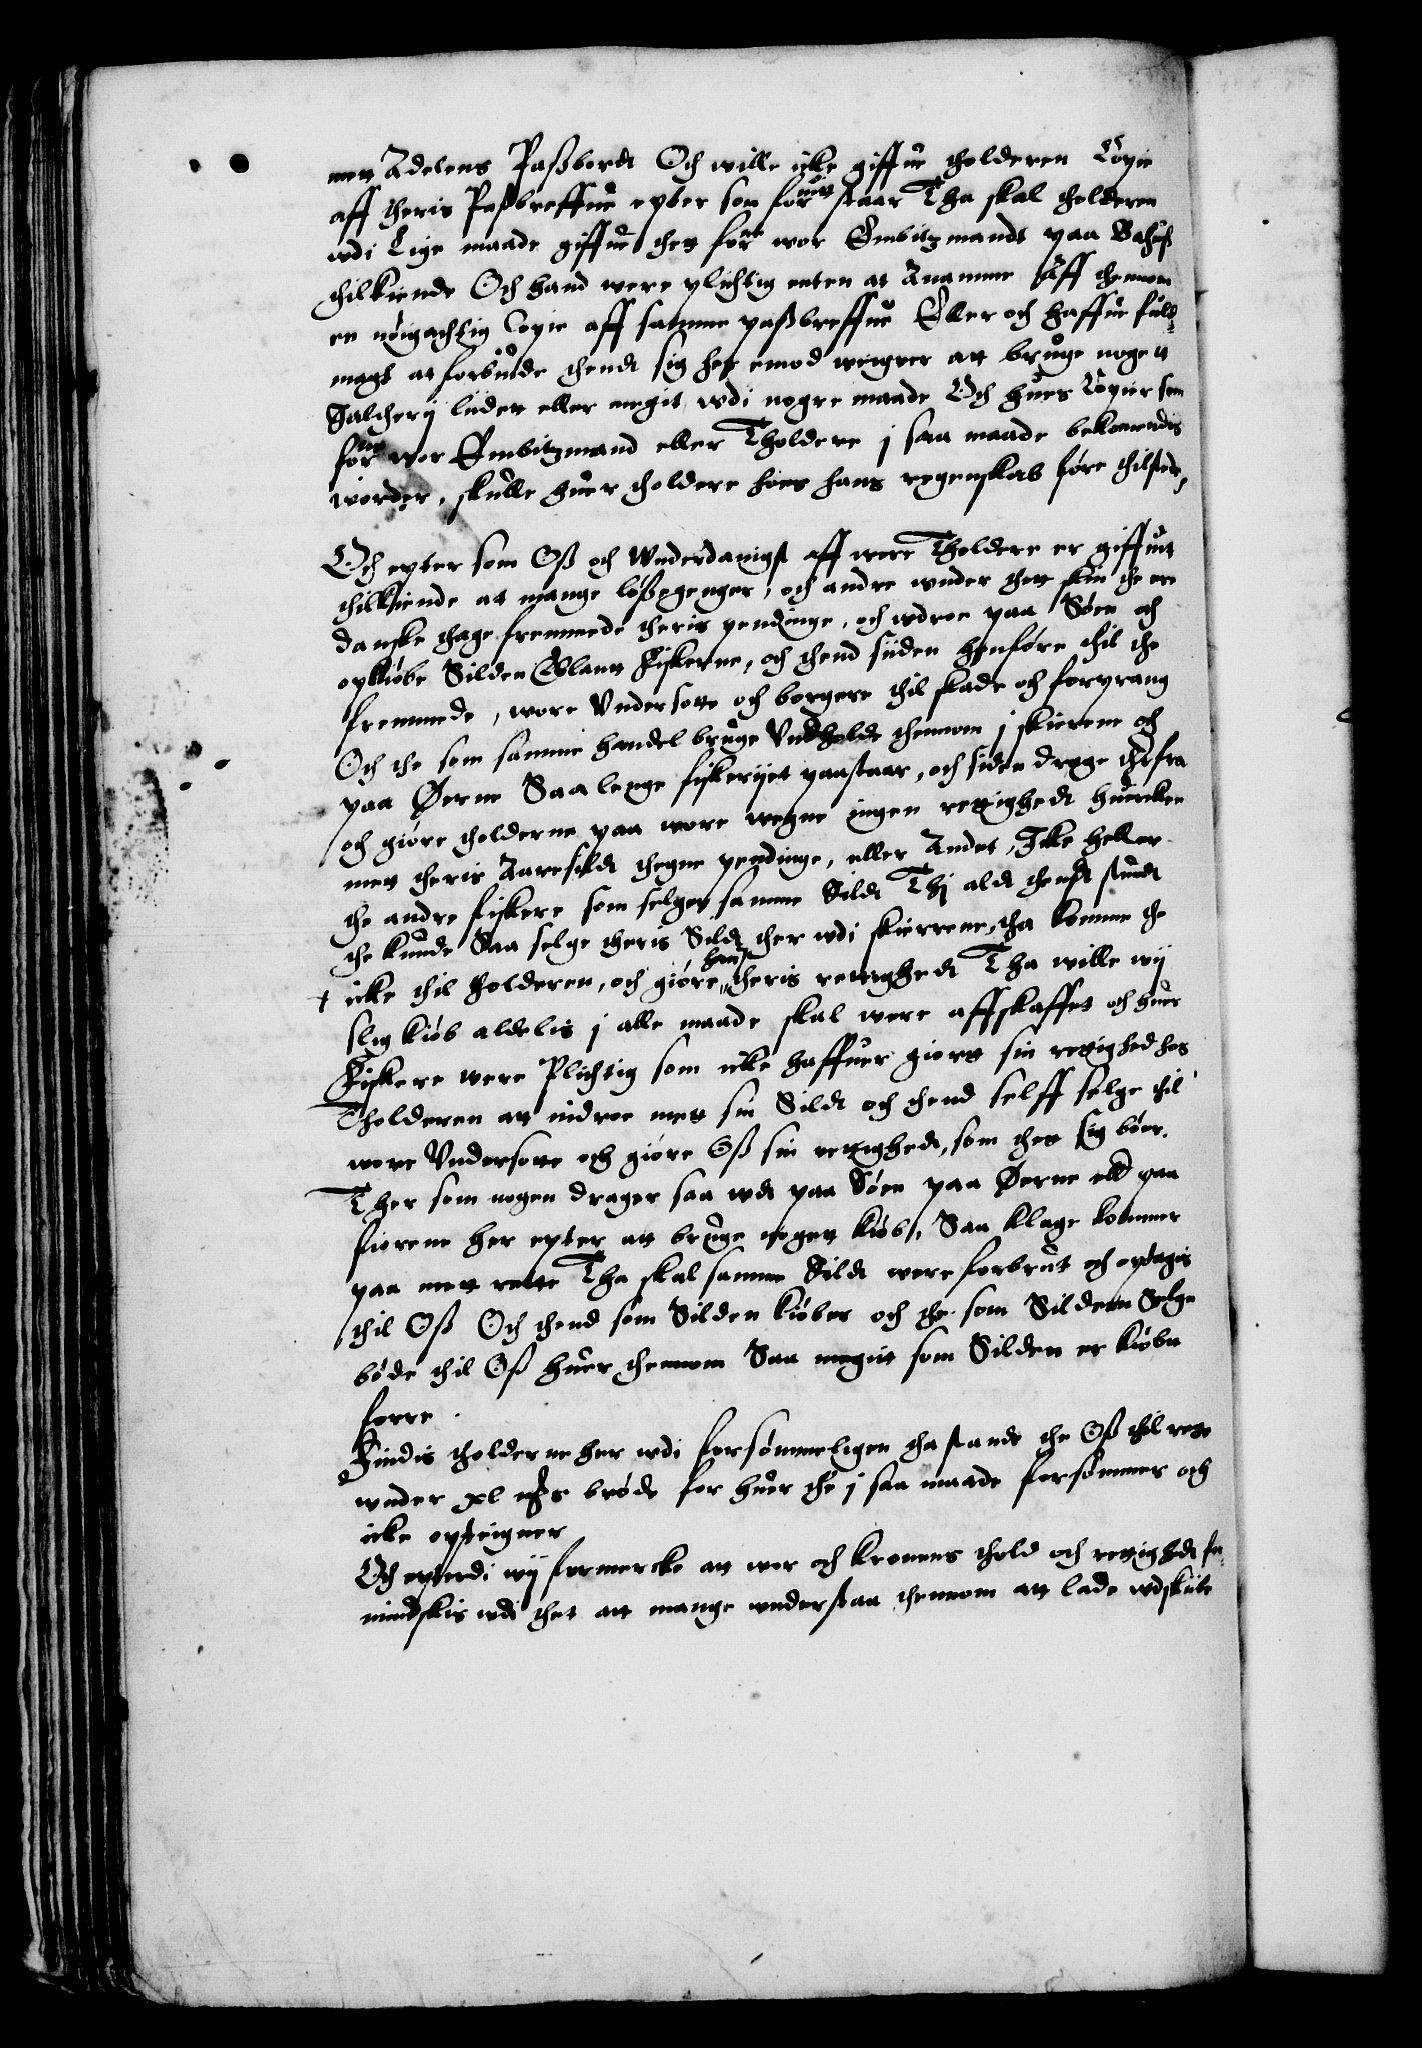 mett Adelens Paßbordt Och wille icke giffue tholderen Copie
aff theris Paßbreffue epter som for​ne staar Tha skal tholderen
wdi Lige maade giffue thett for​ne wor Embitzmandt paa Bahus
thilkiende Och hand were plichtig enten at Anamme aff thennom
en nöigachtig Copie aff samme paßbreffue Eller och haffue fuld
magt at forbiude thendt sig her emod weigrer att bruge nogett
Saltherij liden eller megit wdi nogre maade Och hues Copier som
for​ne wor Embitzmand eller Tholdere j saa maade bekommendis
worder, skulle huer tholdere hoes hans regenskab føre thilstede,
Och epter som Oß och Wnderdanigst aff wore Tholdere er giffuet
thilkiende at mange lößegenger, och andre wnder thett skin the ere
danske thage fremmede theris pendinge, och wdroe paa Söen och
opkiøbe Silden Eblant Fiskerne, och thend siiden henføre thil the
fremmede, wore Vndersotte och borgere thil skade och forprang
Och the som samme handel bruge Vndholde thennom j skierene och
paa Øerne Saa lenge fiskerijet paastaar, och siden drage therfra
och giøre tholderne paa wore wegne ingen rettighedt huercken
mett theris Aaresildt thegne pendinge, eller Andet, Icke heller
the andre fiskere som selger samme Sildt Thj aldt thendt stundt
the kunde Saa selge theris Sildt ther wdi skierrene, tha komme the
icke thil tholderen, och giöre hans theris rettighedt Tha wille wij
slig kiöb aldelis j alle maade skal were affskaffet och huer
Fiskere were Plichtig som icke haffuer giortt sin rettighed hos
Tholderen att indroe mett sin Sildt och thend selff selge thil
wore Vndersotte och giøre Oß sin rettighedt, som thet sig böer.
Ther som nogen drager saa wdt paa Söen paa Øerne eller paa
fiorene her epter att bruge nogett kiöb, Saa klage kommer
paa mett rette Tha skal samme Sildt were forbrut och optagis
thil Oß Och thend som Silden kiöber och the som Silden Selge
böde thil Oß huer thennom Saa megit som Silden er kiöbt
forre.
Findis tholderne her wdi forsömmeligen tha stande the Oß thil rette
wnder xl mks bröde for huer the j saa maade forsömmer och
icke opteigner
Och epterdi wij formercke att wor och kronens thold och rettighedt for
mindskis wdi thet att mange wnderstaa thennom att lade wdskibe